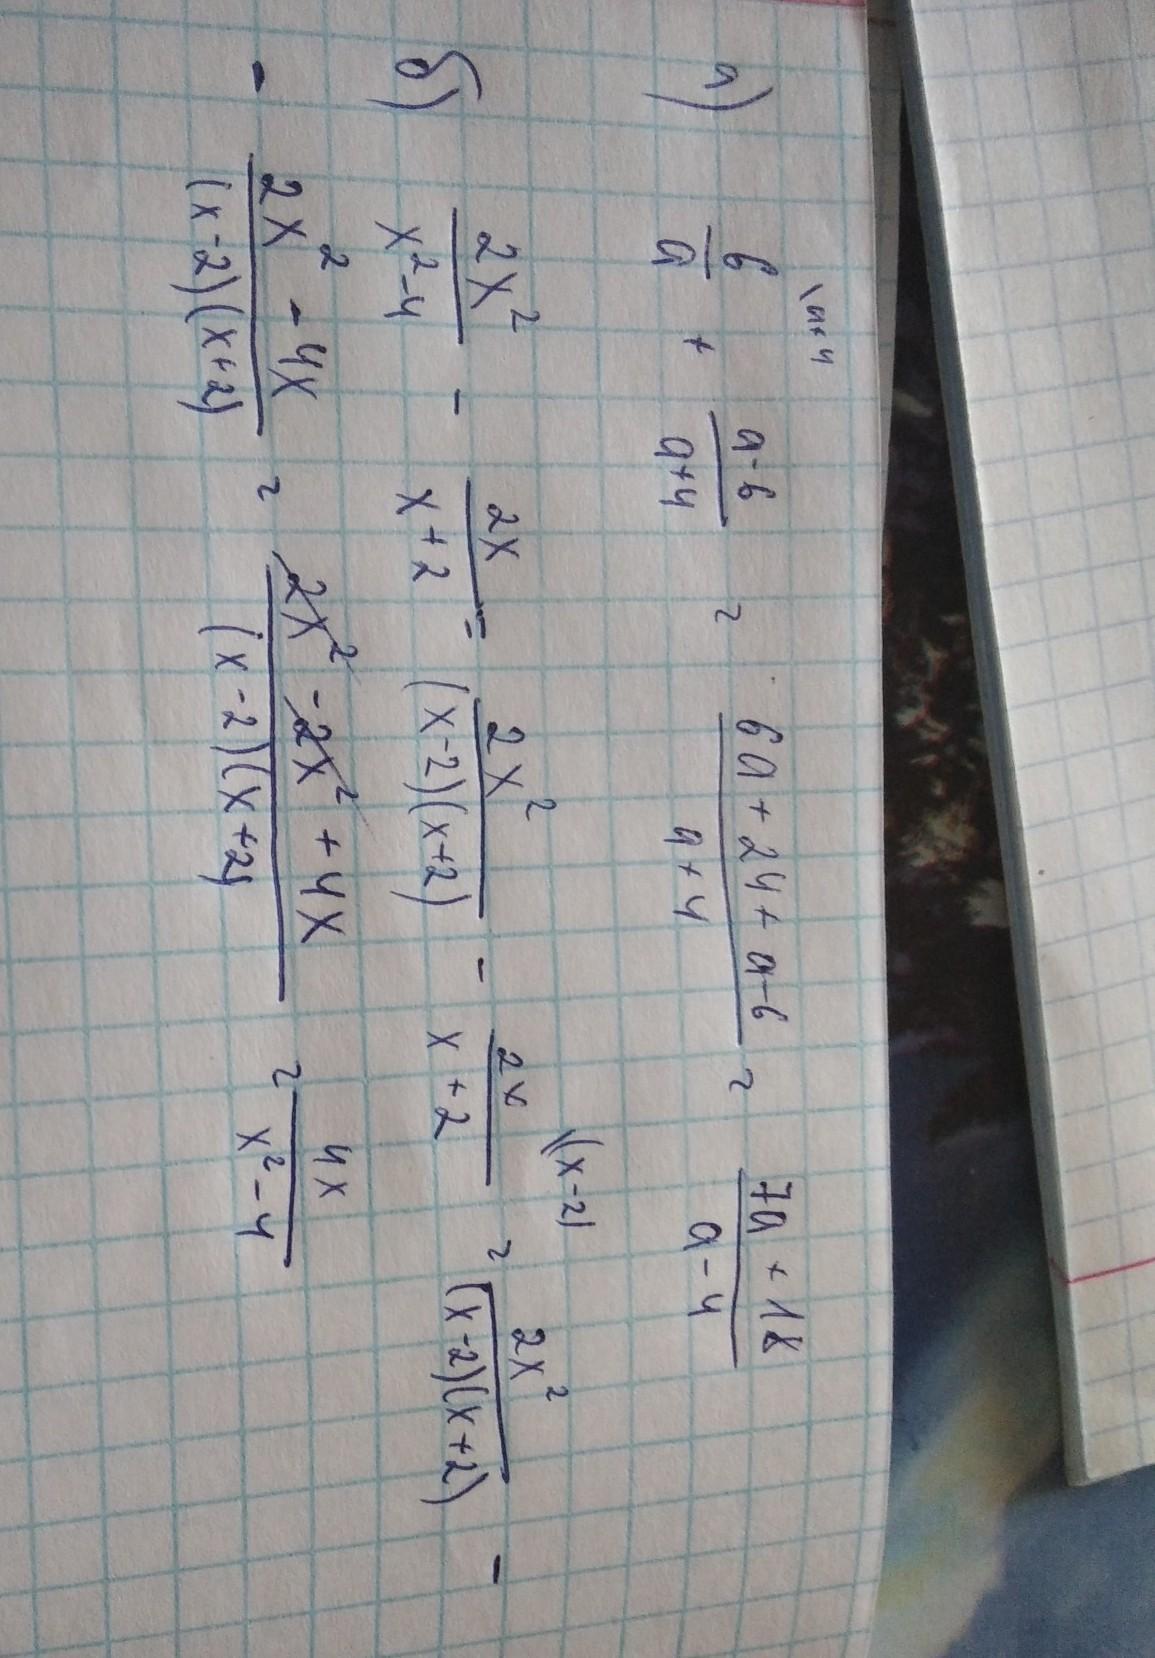 а) 6/а \а+4 + а-6/а+4 = 6а+24+а-6/а+4 = 7а+18/а-4
б) 2x²/x²-4 - 2x/x+2 = 2x²/(x-2)(x+2) - 2x/x+2 \(x-2) = 2x²/(x-2)(x+2) -
- 2x²-4x/(x-2)(x+2) = 2x²-2x²+4x/(x-2)(x+2) = 4x/x²-4